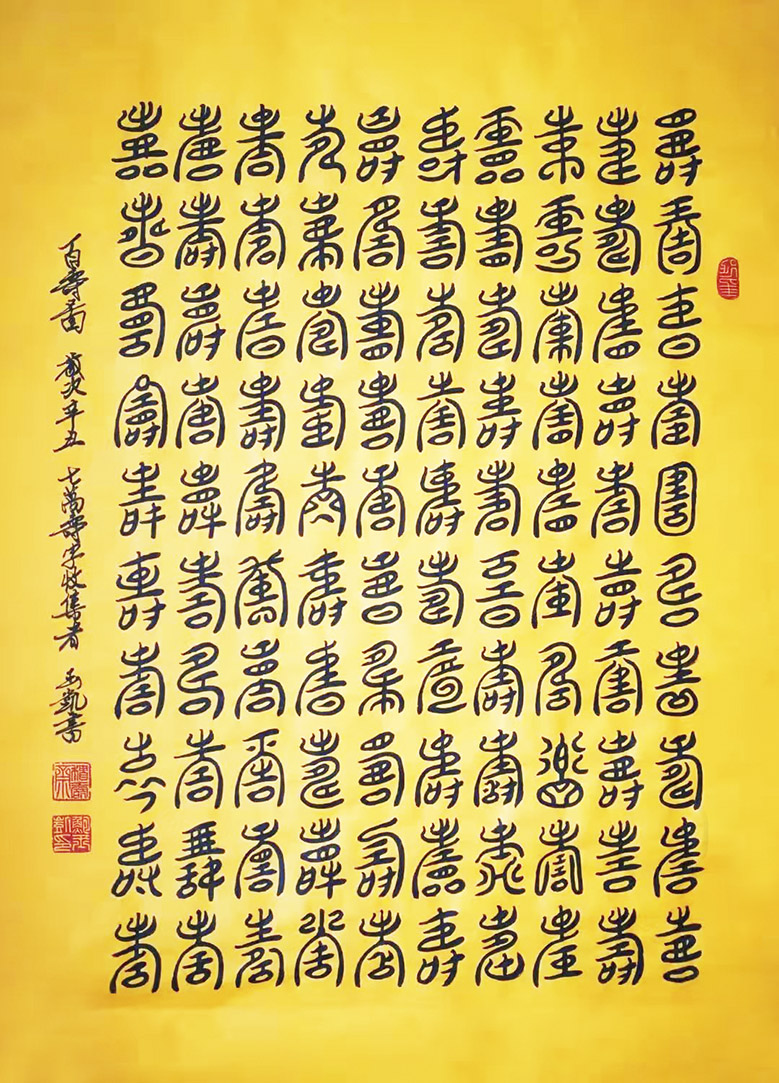 壽壽壽壽壽壽壽壽壽壽
壽壽壽壽壽壽壽壽壽壽
壽壽壽壽壽壽壽壽壽壽
壽壽壽壽壽壽壽壽壽壽
壽壽壽壽壽壽壽壽壽壽
壽壽壽壽壽壽壽壽壽壽
壽壽壽壽壽壽壽壽壽壽
壽壽壽壽壽壽壽壽壽壽
壽壽壽壽壽壽壽壽壽壽
壽壽壽壽壽壽壽壽壽壽
百壽圖 歲次辛丑 七萬壽字收集者 玉凱書